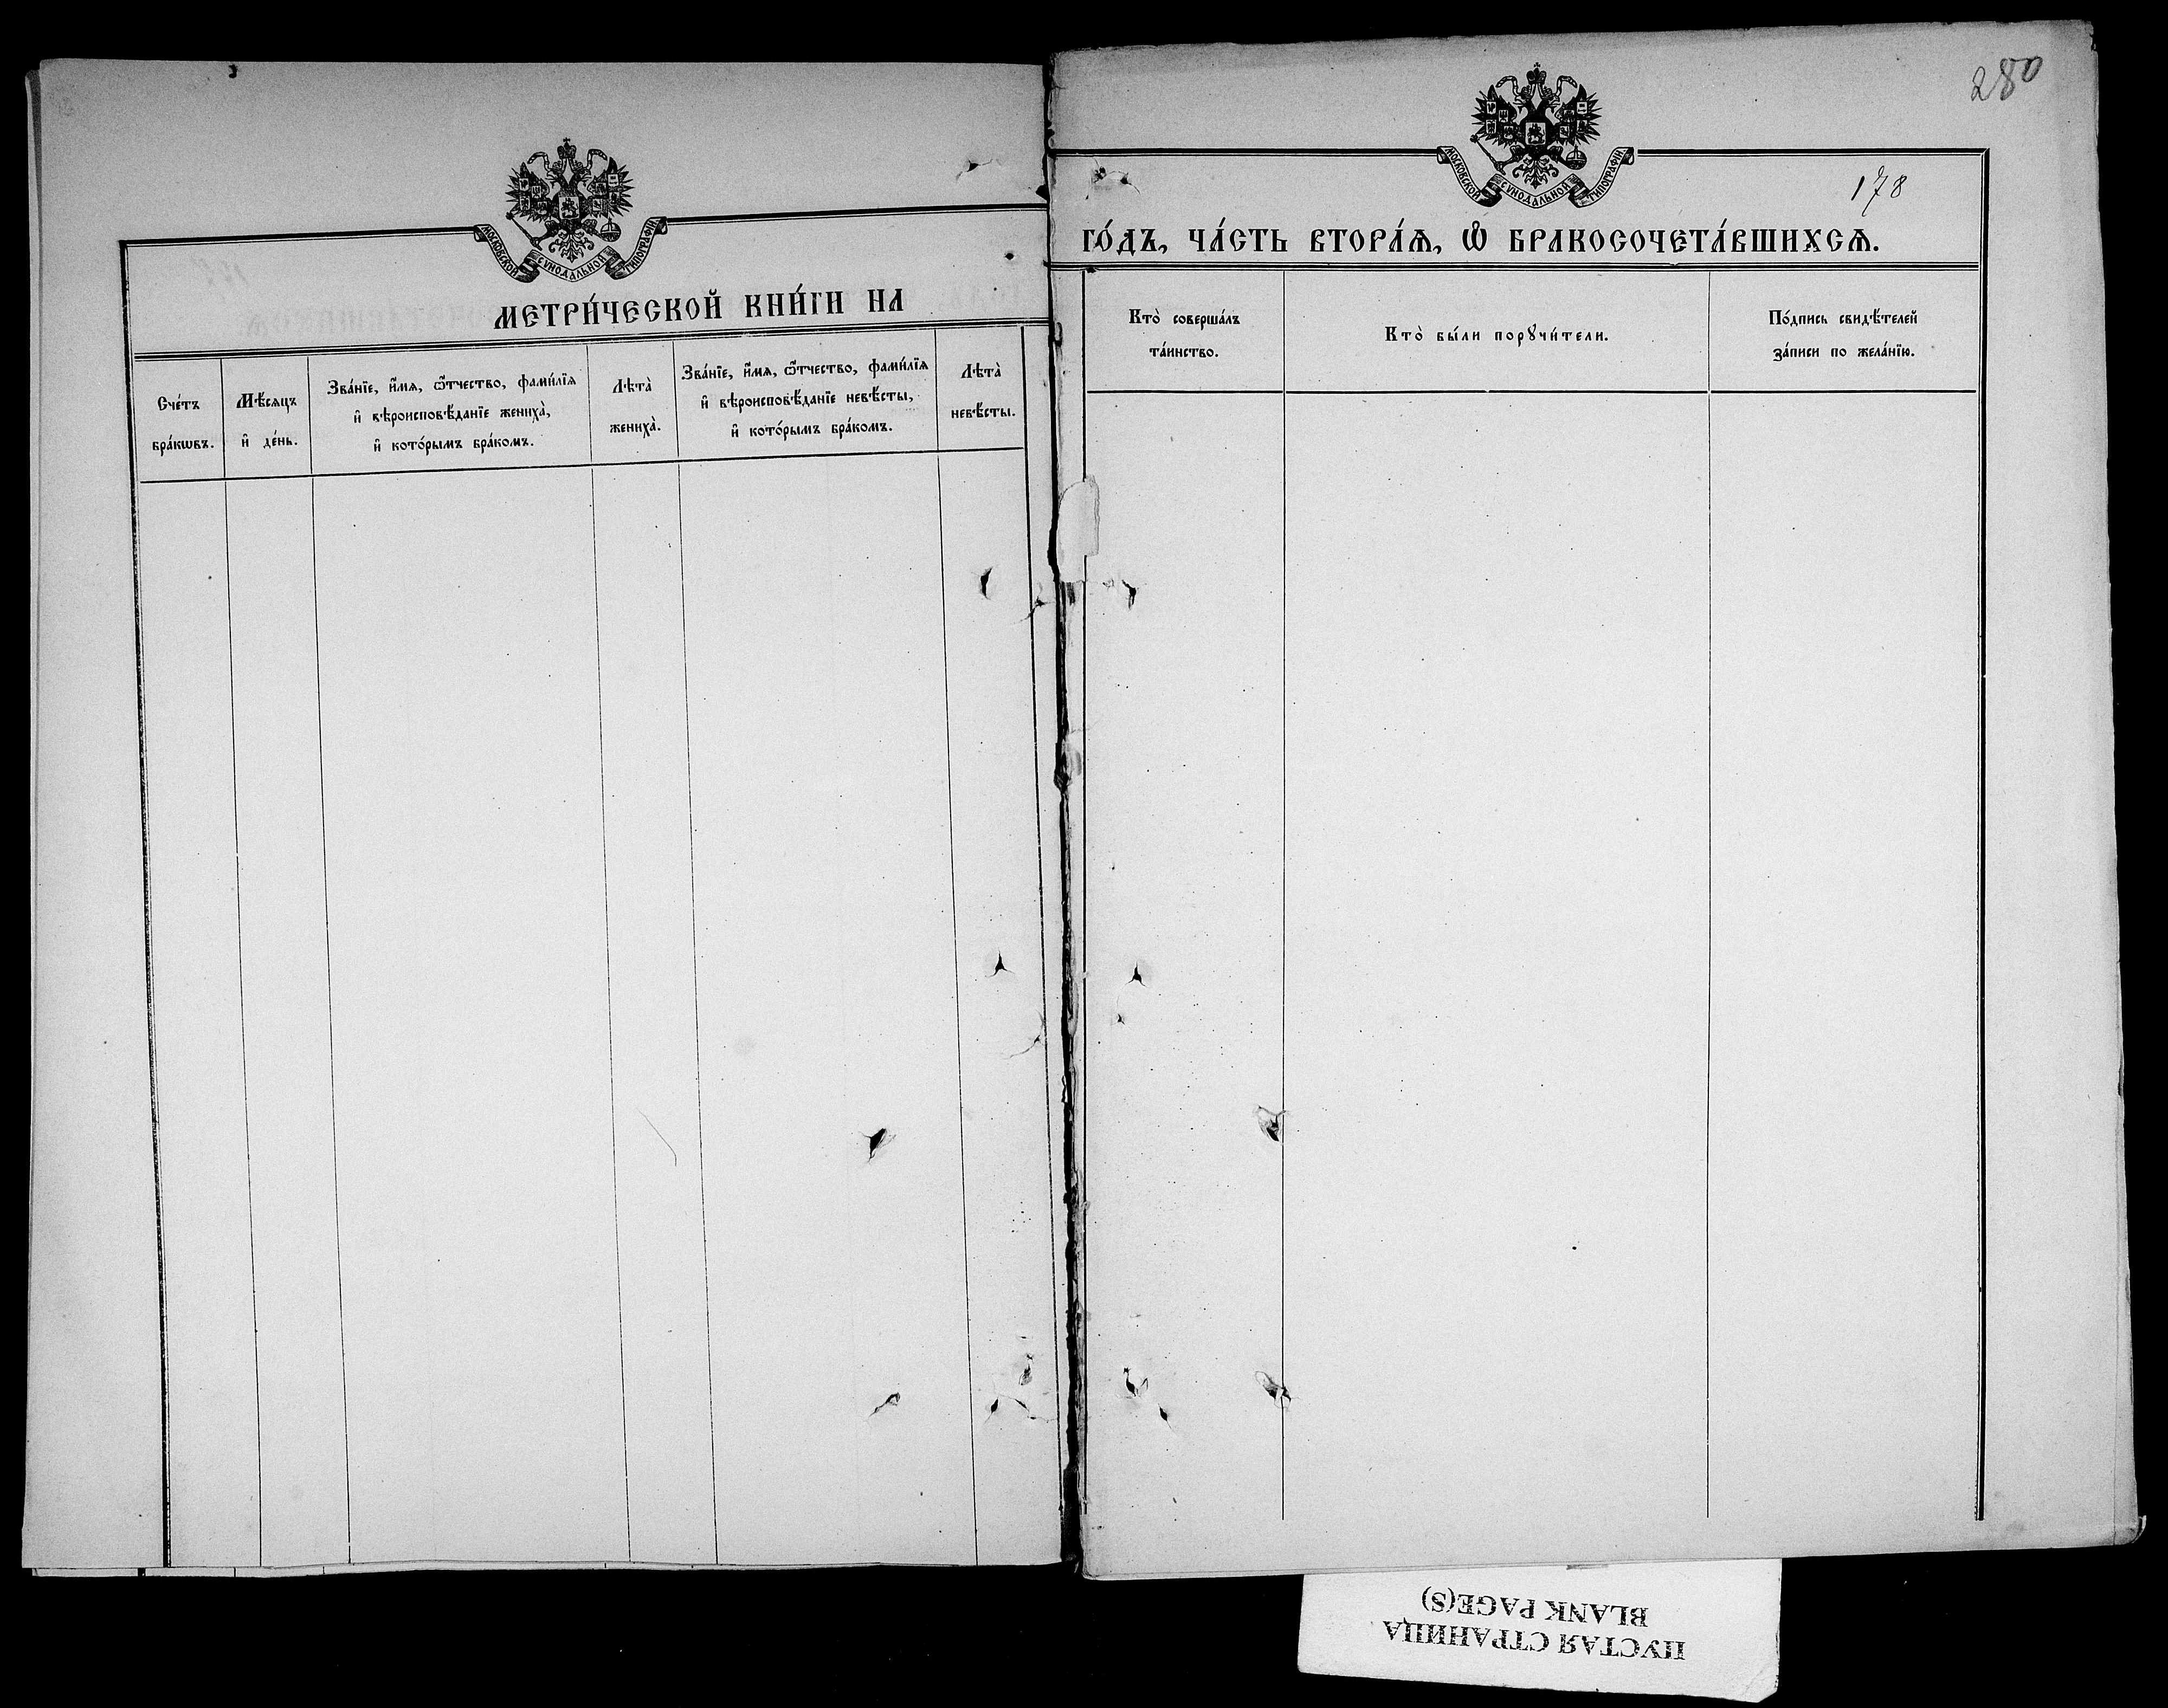 МОСКОВСКОЙ СѴНОДАЛЬНОЙ ТИПОГРАФІИ
МЕТРИ́ЧЕСКОЙ КНИ́ГИ НА
Сче́тъ
бра́кѡвъ.
Мѣ́сяцъ
и҆ де́нь.
Зва́нїе, и҆́мѧ, ѻ҆́тчество, фами́лїѧ
и҆ вѣроисповѣ́данїе жениха̀,
и҆ кото́рымъ бра́комъ.
Лѣта̀
жениха̀.
Зва́нїе, и҆́мѧ, ѻ҆́тчество, фами́лїѧ
и҆ вѣроисповѣ́данїе невѣ́сты,
и҆ кото́рымъ бра́комъ.
Лѣта̀
невѣ́сты.
280
МОСКОВСКОЙ СѴНОДАЛЬНОЙ ТИПОГРАФІИ
178
ГО́ДЪ, ЧА́СТЬ ВТОРА́Ѧ, Ѡ҆ БРАКОСОЧЕТА́ВШИХСѦ.
Кто̀ соверша́лъ
та́инство.
Кто̀ бы́ли порꙋчи́тели.
По́дпись свидѣ́телей
за́писи по жела́нїю.
ПУСТАЯ СТРАНИЦА
BLANK PAGE(S)